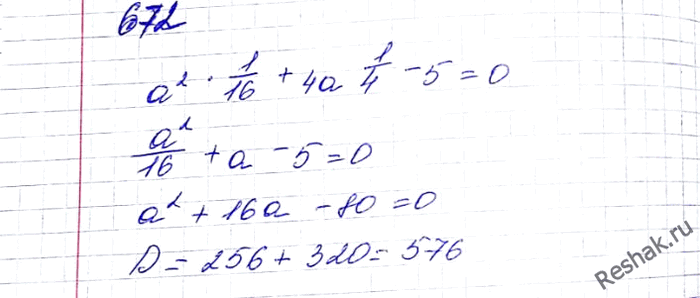 672
a² · 1/16 + 4a 1/4 - 5 = 0
a²/16 + a - 5 = 0
a² + 16a - 80 = 0
D = 256 + 320 = 576
Reshak.ru